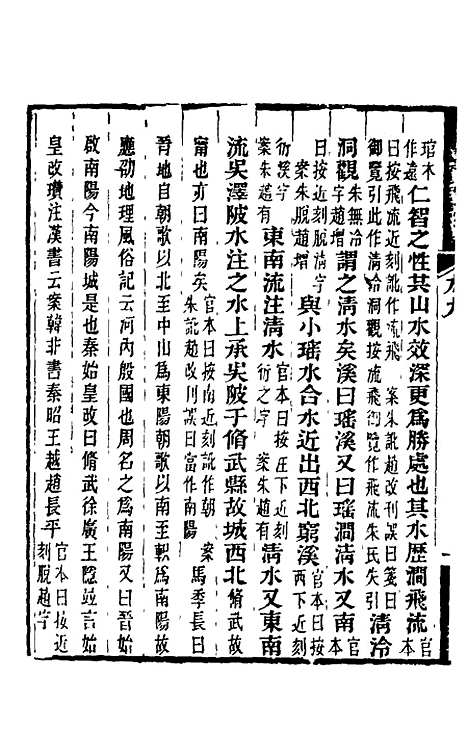 官本作遠仁智之性其山水效深更爲勝處也其水歷澗飛流官本
曰按飛流近刻訛作流飛 案朱訛趙改刊誤曰箋曰御覽引此作清泠洞觀按流飛御覽作飛流朱氏失引清泠
洞觀朱無泠字趙增謂之清水矣溪曰瑤溪又曰瑤澗清水又南官本
曰按近刻脫清字案朱脫趙增與小瑤水合水近出西北窮溪官本曰按西下近刻
衍溪字案朱趙有東南流注清水官本曰按注下近刻衍之字 案朱趙有清水又東南
流吳澤陂水注之水上承吳陂于脩武縣故城西北脩武故
甯也亦曰南陽矣官本曰按南近刻訛作朝 案朱訛趙改刊誤曰當作南陽馬季長曰
晉地自朝歌以北至中山爲東陽朝歌以南至軹爲南陽故
應劭地理風俗記云河內殷國也周名之爲南陽又曰晉始
啟南陽今南陽城是也秦始皇改曰脩武徐廣王隱竝言始
皇改瓚注漢書云案韓非書秦昭王越趙長平官本曰按近刻脫趙字